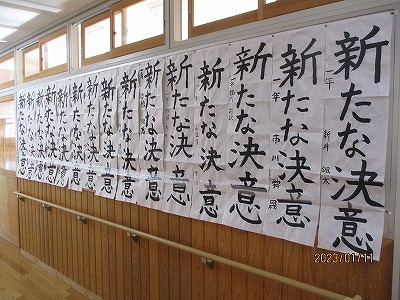 新たな決意
一年 新井
新たな決意
一年 市川
新たな決意
新たな決意
新たな決意
新たな決意
新たな決意
新たな決意
新たな決意
新たな決意
新たな決意
新たな決意
新たな決意
新たな決意
新たな決意
2023/01/11